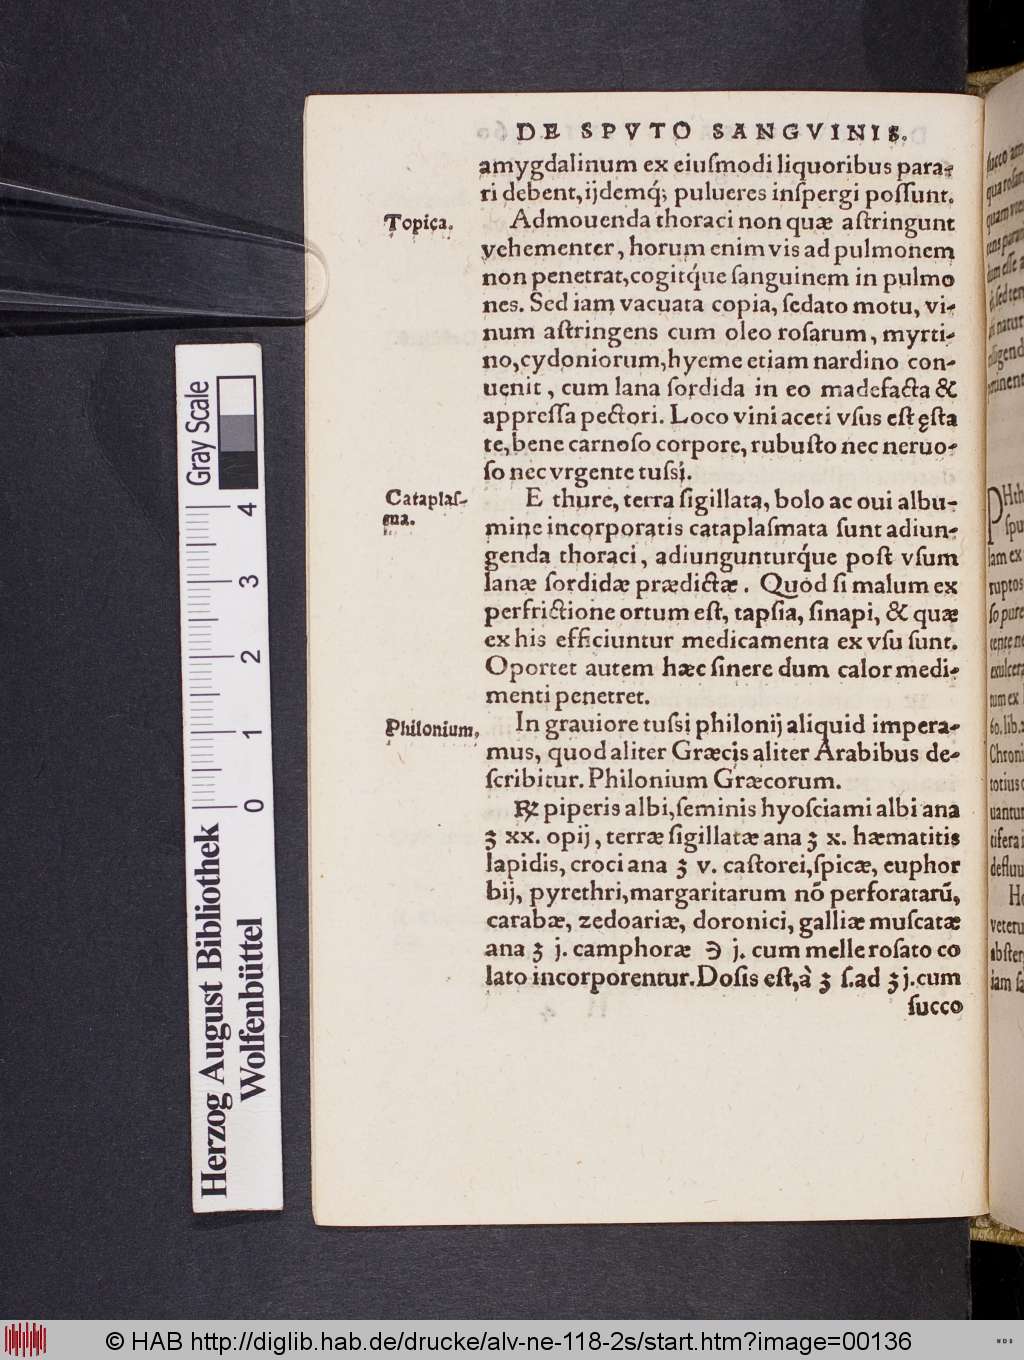 DE SPVTO SANGVINIS.
amygdalinum ex eiuſmodi liquoribus para-
ri debent, ijdemq́; pulueres inſpergi poſſunt.
Topica.
Admouenda thoraci non quæ aſtringunt
vehementer, horum enim vis ad pulmonem
non penetrat, cogitq́ue ſanguinem in pulmo
nes. Sed iam vacuata copia, ſedato motu, vi-
num aſtringens cum oleo roſarum, myrti-
no, cydoniorum, hyeme etiam nardino con-
uenit, cum lana ſordida in eo madefacta &
appreſſa pectori. Loco vini aceti vſus eſt ęſta
te, bene carnoſo corpore, rubuſto nec neruo-
ſo nec vrgente tuſsi.
Cataplaſ-
ma.
E thure, terra ſigillata, bolo ac oui albu-
mine incorporatis cataplaſmata ſunt adiun-
genda thoraci, adiungunturq́ue poſt vſum
lanæ ſordidæ prædictæ. Quod ſi malum ex
perfrictione ortum eſt, tapſia, ſinapi, & quæ
ex his efficiuntur medicamenta ex vſu ſunt.
Oportet autem hæc ſinere dum calor medi-
menti penetret.
Philonium.
In grauiore tuſsi philonij aliquid impera-
mus, quod aliter Græcis aliter Arabibus de-
ſcribitur. Philonium Græcorum.
℞ piperis albi, ſeminis hyoſciami albi ana
ʒ xx. opij, terræ ſigillatæ ana ʒ x. hæmatitis
lapidis, croci ana ʒ v. caſtorei, ſpicæ, euphor
bij, pyrethri, margaritarum nõ perforatarũ,
carabæ, zedoariæ, doronici, galliæ muſcatæ
ana ʒ j. camphoræ ℈ j. cum melle roſato co
lato incorporentur. Doſis eſt, à ʒ ſ. ad ʒ j. cum
ſucco
Gray Scale
4
3
2
1
0
Herzog August Bibliothek
Wolfenbüttel
© HAB http://diglib.hab.de/drucke/alv-ne-118-2s/start.htm?image=00136